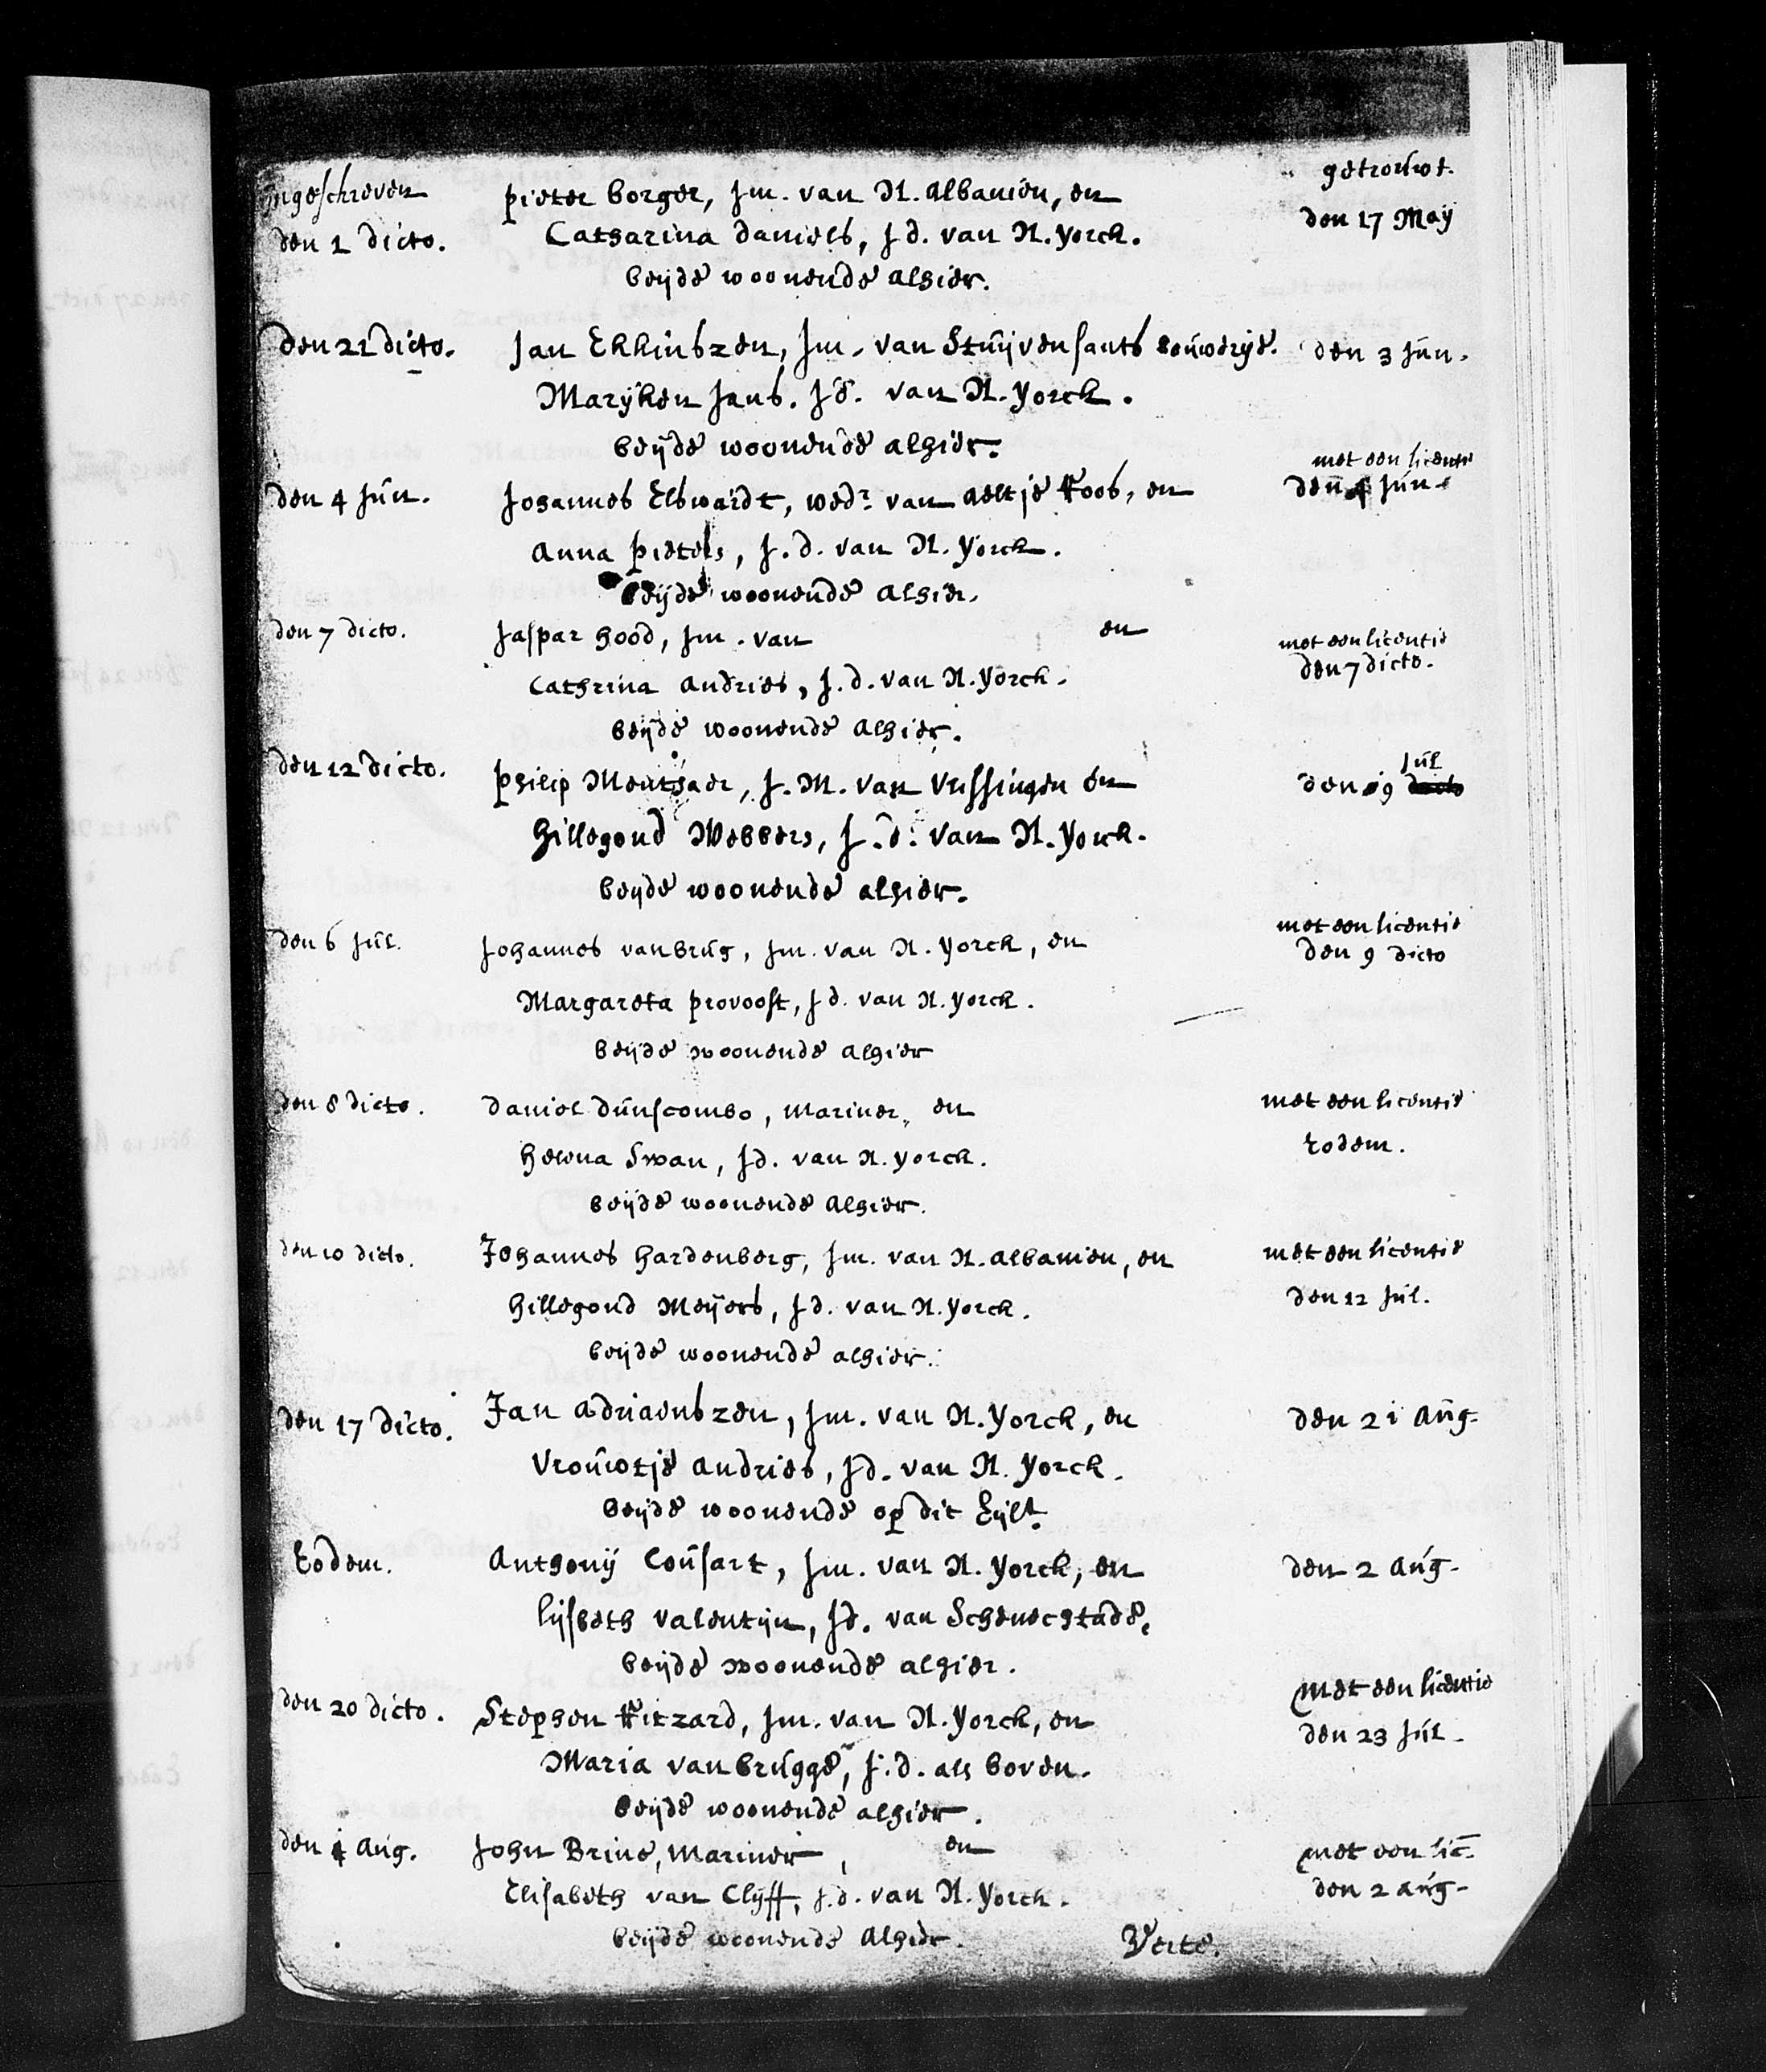 Ingeschreven Pieter Borger, Jm. van N. Albanien, en getrouwt.
den 1 dicto. Catharina Daniels, J d. van N. Yorck. den 17 Maÿ
beÿde woonende alhier.
den 21 dicto. Jan Ekkinszen, Jm. van Stuÿvensants Bouwerÿe. den 3 Jun.
Marÿken Jans. J d. van N. Yorck.
beÿde woonende alhier.
met een licentie
den 4 Jun. Johannes Elswardt, wedr. van Aeltje Roos, en den 4 Jun.
Anna Pieters, J. d. van N. Yorck.
beÿde woonende alhier.
den 7 dicto. Jaspar Hood, Jm. van en met een licentie
Cathrina Andries, J. d. van N. Yorck. den 7 dicto.
beÿde woonende alhier.
den 12 dicto. Philip Menthaer, J. M. van Vlissingen en den 19 Jul
Hillegond Webbers, J. d. van N. Yorck.
beÿde woonende alhier.
met een licentie
den 6 Jul. Johannes van Brug, Jm. van N. Yorck, en den 9 dicto
Margareta Provoost, J d. van N. Yorck.
beÿde woonende alhier
den 8 dicto. Daniel Dunscombe, Mariner, en met een licentie
Helena Swan, J d. van N. Yorck. Eodem.
beÿde woonende alhier.
den 10 dicto. Johannes Hardenberg, Jm. van N. Albanien, en met een licentie
Hillegond Meÿers, J d. van N. Yorck. den 12 Jul.
beÿde woonende alhier.
den 17 dicto. Jan Adriaenszen, Jm. van N. Yorck, en den 21 Aug.
Vrouwtje Andries, J d. van N. Yorck.
beÿde woonende op dit Eÿlt.
Eodem. Anthonÿ Cousart, Jm. van N. Yorck, en den 2 Aug.
Lÿsbeth Valentÿn, J d. van Schenechtade,
beÿde woonende alhier.
met een licentie
den 20 dicto. Stephen Ritzard, Jm. van N. Yorck, en den 23 Jul.
Maria van Brugge, J. d. als boven.
beÿde woonende alhier.
den 1 Aug. John Brine, Mariner, en met een lic.
Elisabeth van Clÿff, J. d. van N. Yorck. den 2 Aug.
beÿde woonende alhier. Verte.